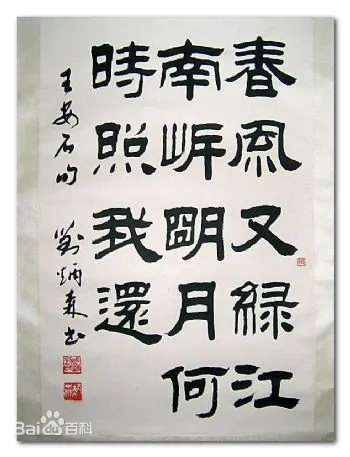 春風又緑江
南岸明月何
時照我還
王安石句
劉炳森書
Bai百科